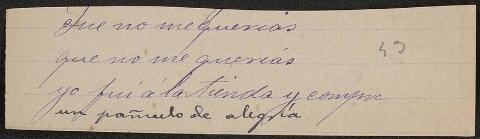 Que no me querias
que no me querias
yo fui á la tienda y compre
un pañuelo de alegria
43